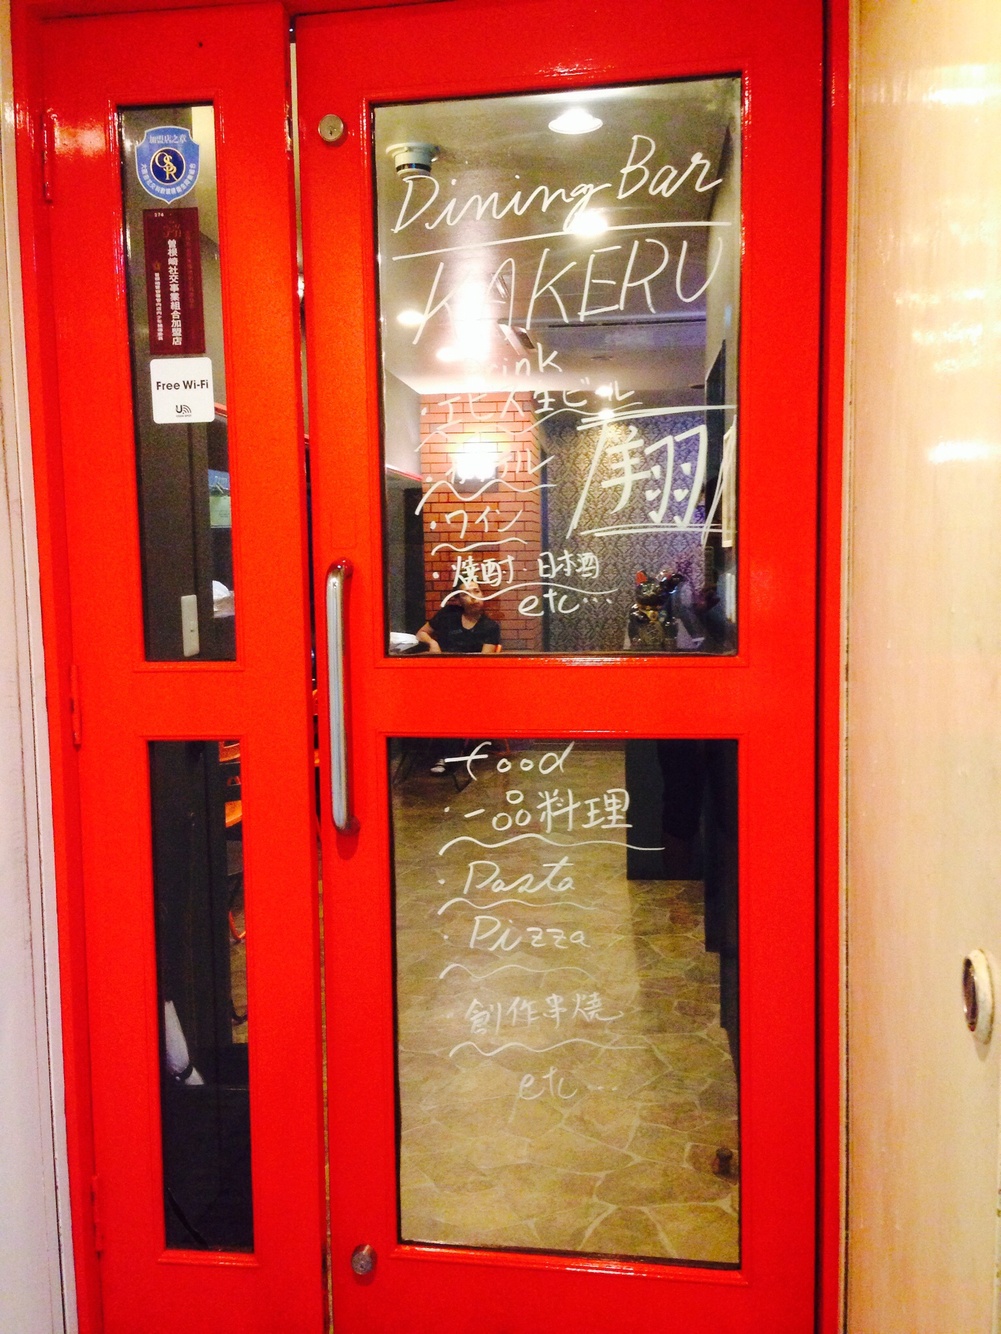 加盟店之章
OSR
曽根崎社交事業組合加盟店
Free Wi-Fi
Dining Bar
KAKERU
翔
Drink
・エビス生ビール
・ワイン
・焼酎・日本酒
etc…
food
・一品料理
・Pasta
・Pizza
創作串焼
etc…